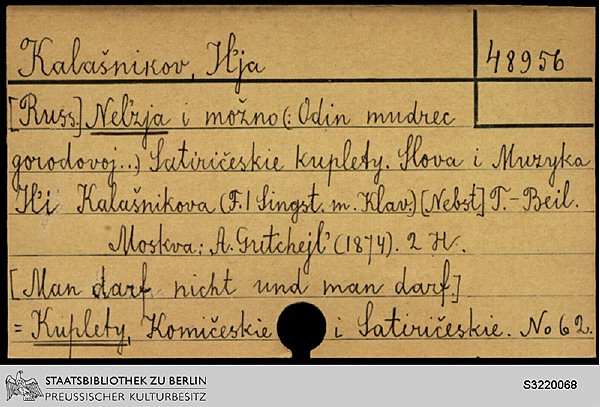 Kalašnikov, Il'ja
48956
[Russ.] Nel'zja i možno (: Odin mudrec
gorodovoj...) Satiričeskie kuplety. Slova i Muzyka
Il'i Kalašnikova (F. 1 Singst. m. Klav.) [Nebst] T.-Beil.
Moskva: A. Gutchejl' (1874). 2 H.
[Man darf nicht und man darf]
= Kuplety, Komičeskie i Satiričeskie. No 62.
STAATSBIBLIOTHEK ZU BERLIN
PREUSSISCHER KULTURBESITZ
S3220068